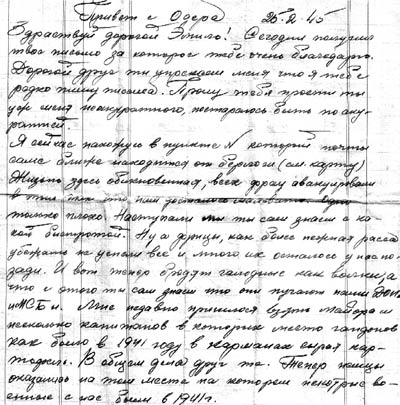 Привет с Одера 25.2.45
Здравствуй дорогой Эмиль! Сегодня получил
твое письмо за которое тебе очень благодарю.
Дорогой друг ты упрекаешь меня что я тебе
редко пишу письма. Прошу тебя прости ты
уж меня неаккуратного, постараюсь быть по аку-
ратней.
Я сейчас нахожусь в пункте N который почти
самое ближе находится от берлоги (см. карту)
Жизнь здесь обыкновенная, всех фрау эвакуировали
в тыл так что нам досталось маловато. Одно
только плохо. Наступали мы ты сам знаешь с ка-
кой быстротой. Ну а фрицы, как более нежная расса
убежать не успели все и много их осталось у нас по-
зади. И вот теперь бродят голодные как волки
что с этого ты сам знаешь что они пугают наши
и МСБ ы. Мне недавно пришлось взять майора и
несколько капитанов в которых место
как было в 1941 году в карманах сырая кар-
тошка. В общем дела друг то. Теперь немцы
оказались на том месте на котором некотрые во-
енные с нас были в 1941г.